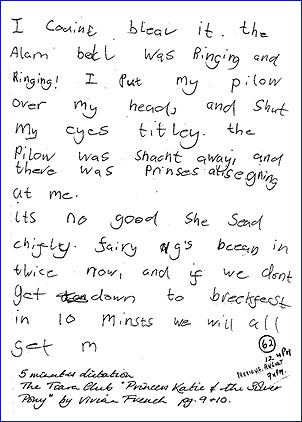 I Couint blear it. the
Alarn bell was Ringing and
Ringing! I Put my pilow
Over my head, and Shut
my eyes titley. the
Pilow was Shacht away, and
there was Prinses
at me.
Its no good She Sead
chifly. fairy g's beean in
twice now, and if we dont
get down to breckfest
in 10 Minsts we will all
get m
62
12 WPM
PREVIOUS RESULT
9WPM.
5 minutes dictation
The Tiara Club "Princess Katie & the Silver
Pony" by Vivian French pg. 9 + 10.